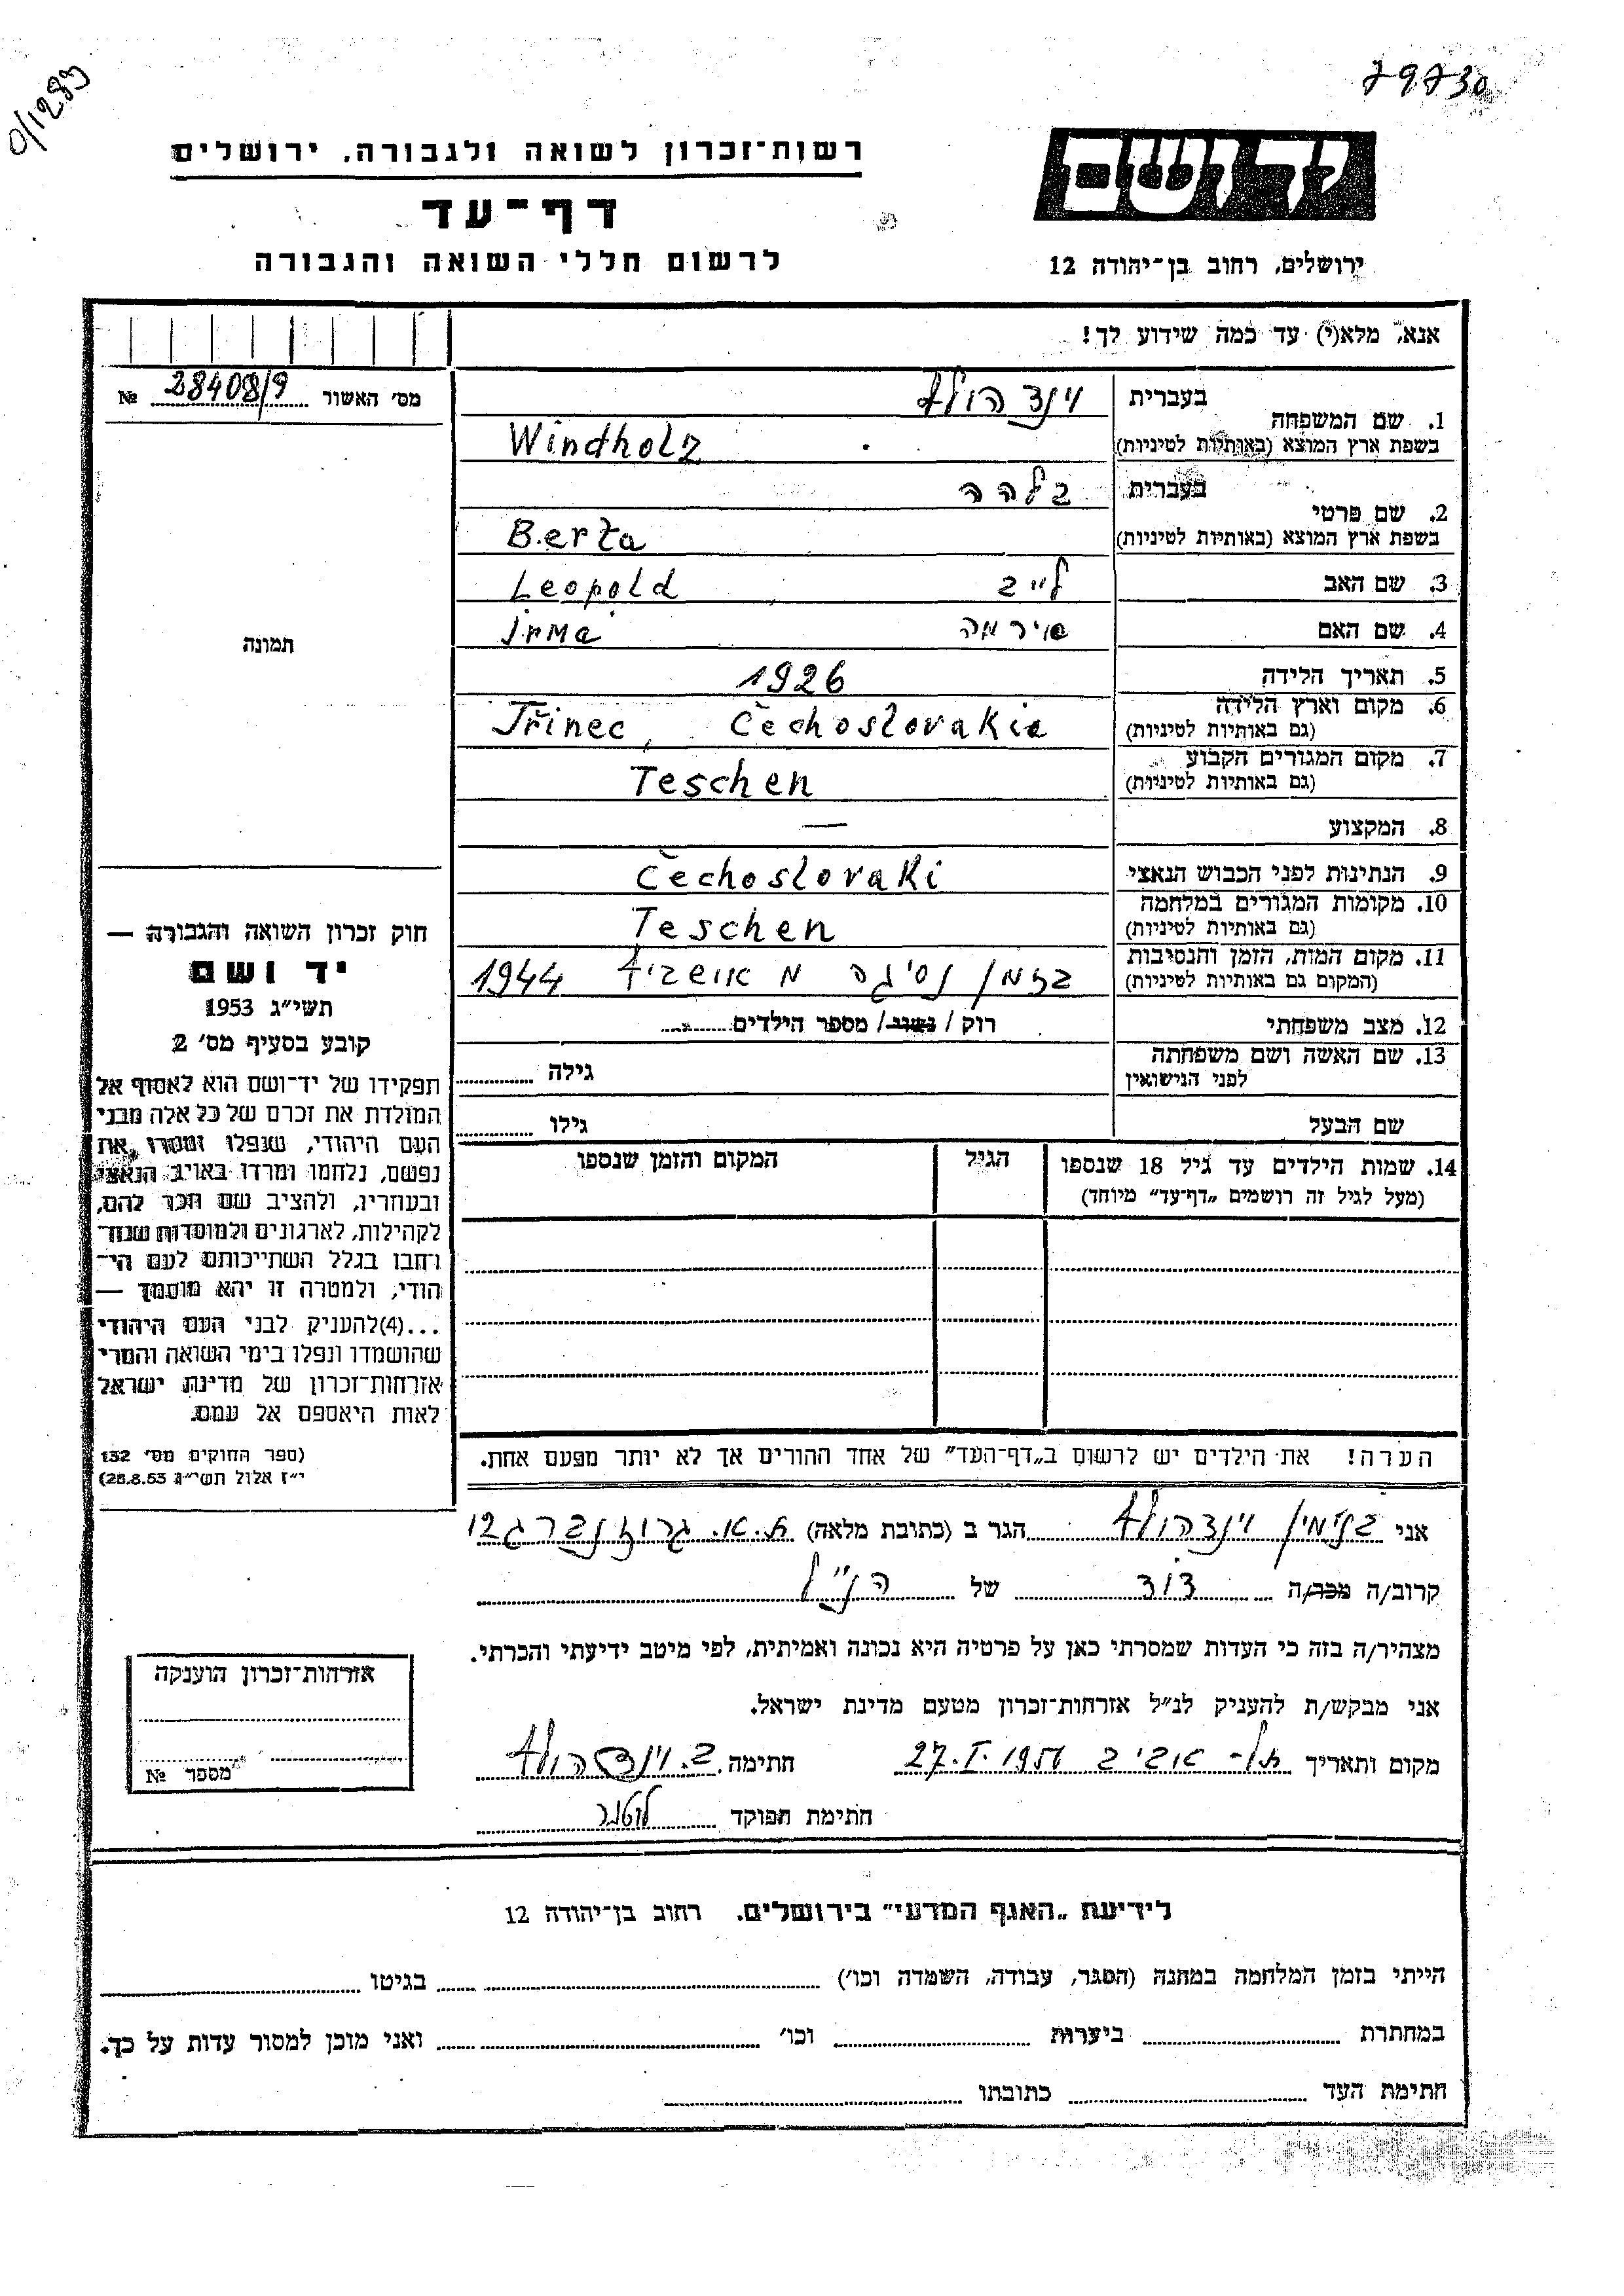 0/1283
79730
רשות־זכרון לשואה ולגבורה, ירושלים
דף־עד
לרשום חללי השואה והגבורה
ידושם
ירושלים, רחוב בן־יהודה 12
אנא, מלא(י) עד כמה שידוע לך!
מס׳ האשור 28408/9 №
תמונה
1. שם המשפחה
בעברית וינדהולץ
בשפת ארץ המוצא (באותיות לטיניות) Windholz
2. שם פרטי
בעברית בלהה
בשפת ארץ המוצא (באותיות לטיניות) Berta
3. שם האב לייב Leopold
4. שם האם אירמה Jrma
5. תאריך הלידה 1926
6. מקום וארץ הלידה
(גם באותיות לטיניות) Třinec, Čechoslovakia
7. מקום המגורים הקבוע
(גם באותיות לטיניות) Teschen
8. המקצוע —
9. הנתינות לפני הכבוש הנאצי Čechoslovaki
10. מקומות המגורים במלחמה
(גם באותיות לטיניות) Teschen
11. מקום המות, הזמן והנסיבות
(המקום גם באותיות לטיניות) בזמן נסיגה מ אושביץ 1944
12. מצב משפחתי רוק / נשוי / מספר הילדים
13. שם האשה ושם משפחתה
לפני הנישואין גילה
שם הבעל גילו
14. שמות הילדים עד גיל 18 שנספו
(מעל לגיל זה רושמים „דף־עד” מיוחד)
הגיל
המקום והזמן שנספו
חוק זכרון השואה והגבורה —
יד ושם
תשי״ג 1953
קובע בסעיף מס׳ 2
תפקידו של יד־ושם הוא לאסוף אל
המולדת את זכרם של כל אלה מבני
העם היהודי, שנפלו ומסרו את
נפשם, נלחמו ומרדו באויב הנאצי
ובעוזריו, ולהציב שם וזכר להם,
לקהילות, לארגונים ולמוסדות שנח־
רחבו בגלל השתייכותם לעם הי־
הודי, ולמטרה זו יהא מוסמך —
...(4)להעניק לבני העם היהודי
שהושמדו ונפלו בימי השואה והמרי
אזרחות־זכרון של מדינת ישראל
לאות היאספם אל עמם.
(ספר החוקים מס׳ 132
י״ז אלול תשי״ג 28.8.53)
הערה! את הילדים יש לרשום ב„דף־העד” של אחד ההורים אך לא יותר מפעם אחת.
אני בנימין וינדהולץ הגר ב (כתובת מלאה) ת.א. גרוזנברג 12
קרוב/ה מכר/ה דוד של הנ״ל
מצהיר/ה בזה כי העדות שמסרתי כאן על פרטיה היא נכונה ואמיתית, לפי מיטב ידיעתי והכרתי.
אני מבקש/ת להעניק לנ״ל אזרחות־זכרון מטעם מדינת ישראל.
מקום ותאריך תל־אביב 27.I.1957 חתימה ב. וינדהולץ
חתימת הפוקד
אזרחות־זכרון הוענקה
מספר №
לידיעת „האגף המדעי” בירושלים, רחוב בן־יהודה 12
הייתי בזמן המלחמה במחנה (הסגר, עבודה, השמדה וכו׳) בגיטו
במחתרת ביערות וכו׳ ואני מוכן למסור עדות על כך.
חתימת העד כתובתו